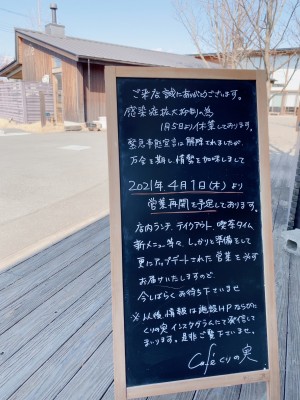 ご来店誠にありがとうございます。
感染症拡大抑制の為
1月5日より休業しております。
緊急事態宣言は解除されましたが、
万全を期し、情勢を加味しまして
2021年 4月1日(木)より
営業再開を予定しております。
店内ランチ、テイクアウト、喫茶タイム
新メニュー等々、しっかりと準備をして
更にアップデートされた営業を必ず
お届けいたしますので
今しばらくお待ち下さいませ
※以後、情報は施設HPならびに
くりの実インスタグラムにて発信して
まいります。是非ご覧下さいませ。
Caféくりの実